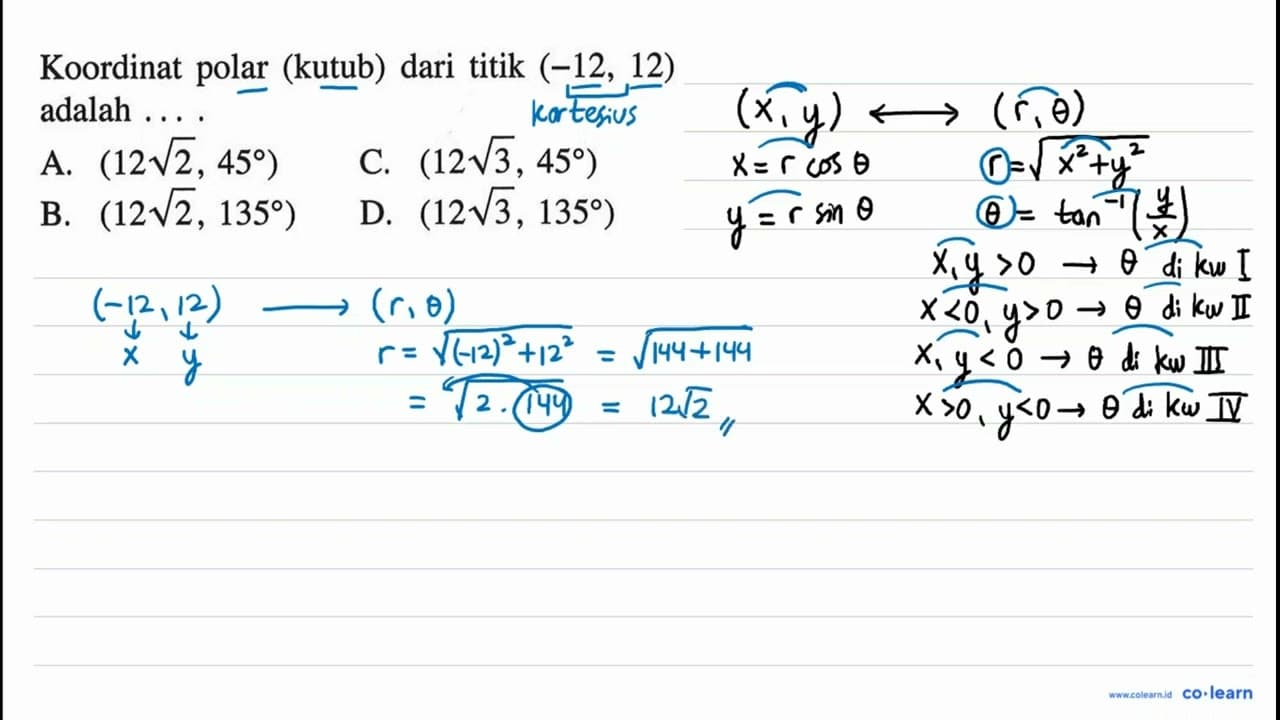 Koordinat polar (kutub) dari titik (−12, 12)
adalah . . . .
kartesius
A. (12√2, 45°) C. (12√3, 45°)
B. (12√2, 135°) D. (12√3, 135°)
(x, y) ⟷ (r, θ)
x = r cos θ r = √(x² + y²)
y = r sin θ θ = tan⁻¹(y/x)
x, y > 0 → θ di kw I
x < 0, y > 0 → θ di kw II
x, y < 0 → θ di kw III
x > 0, y < 0 → θ di kw IV
(−12, 12) ⟶ (r, θ)
↓ ↓
x y
r = √((−12)² + 12²) = √(144 + 144)
= √(2 . 144) = 12√2 //
www.colearn.id co·learn